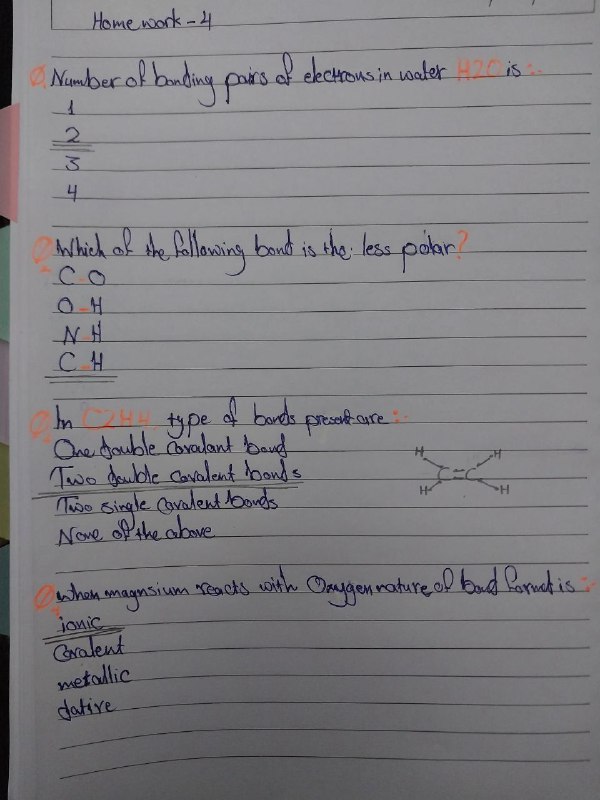 Home work - 4
Q Number of bonding pairs of electrons in water H2O is :-
1
2
3
4
Q Which of the following bond is the less polar?
C-O
O-H
N-H
C-H
Q In C2H4 type of bonds present are :-
One double covalant bond
Two double covalent bonds
Two single covalent bonds
None of the above
H H
C=C
H H
Q when magnsium reacts with Oxygen nature of bond formet is :-
ionic
Covalent
metallic
dative